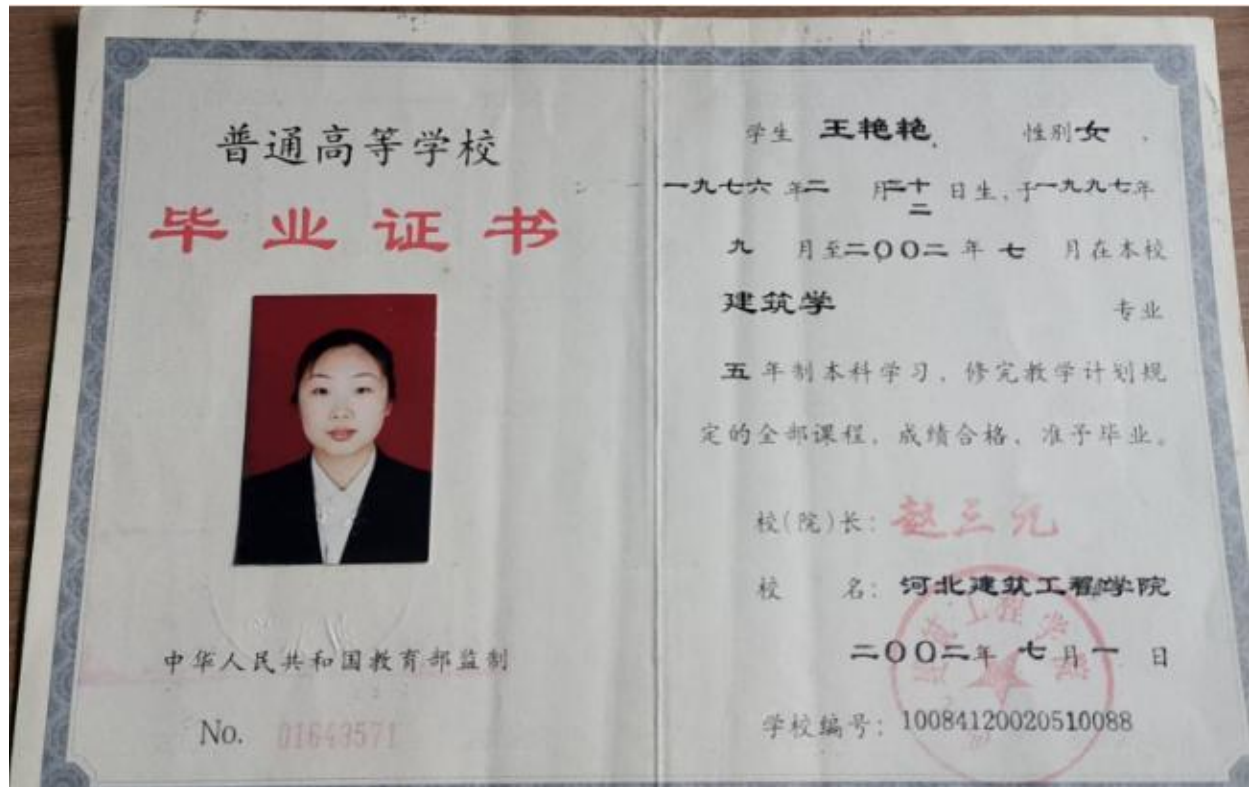 普通高等学校
毕业证书
中华人民共和国教育部监制
No. 01643571
学生 王艳艳, 性别 女 ,
一九七六 年 二 月 二十二 日生, 于 一九九七 年
九 月至 二〇〇二 年 七 月在本校
建筑学 专业
五 年制本科学习, 修完教学计划规
定的全部课程, 成绩合格, 准予毕业。
校(院)长: 赵三元
校 名: 河北建筑工程学院
二〇〇二 年 七 月 一 日
学校编号: 10084120020510088